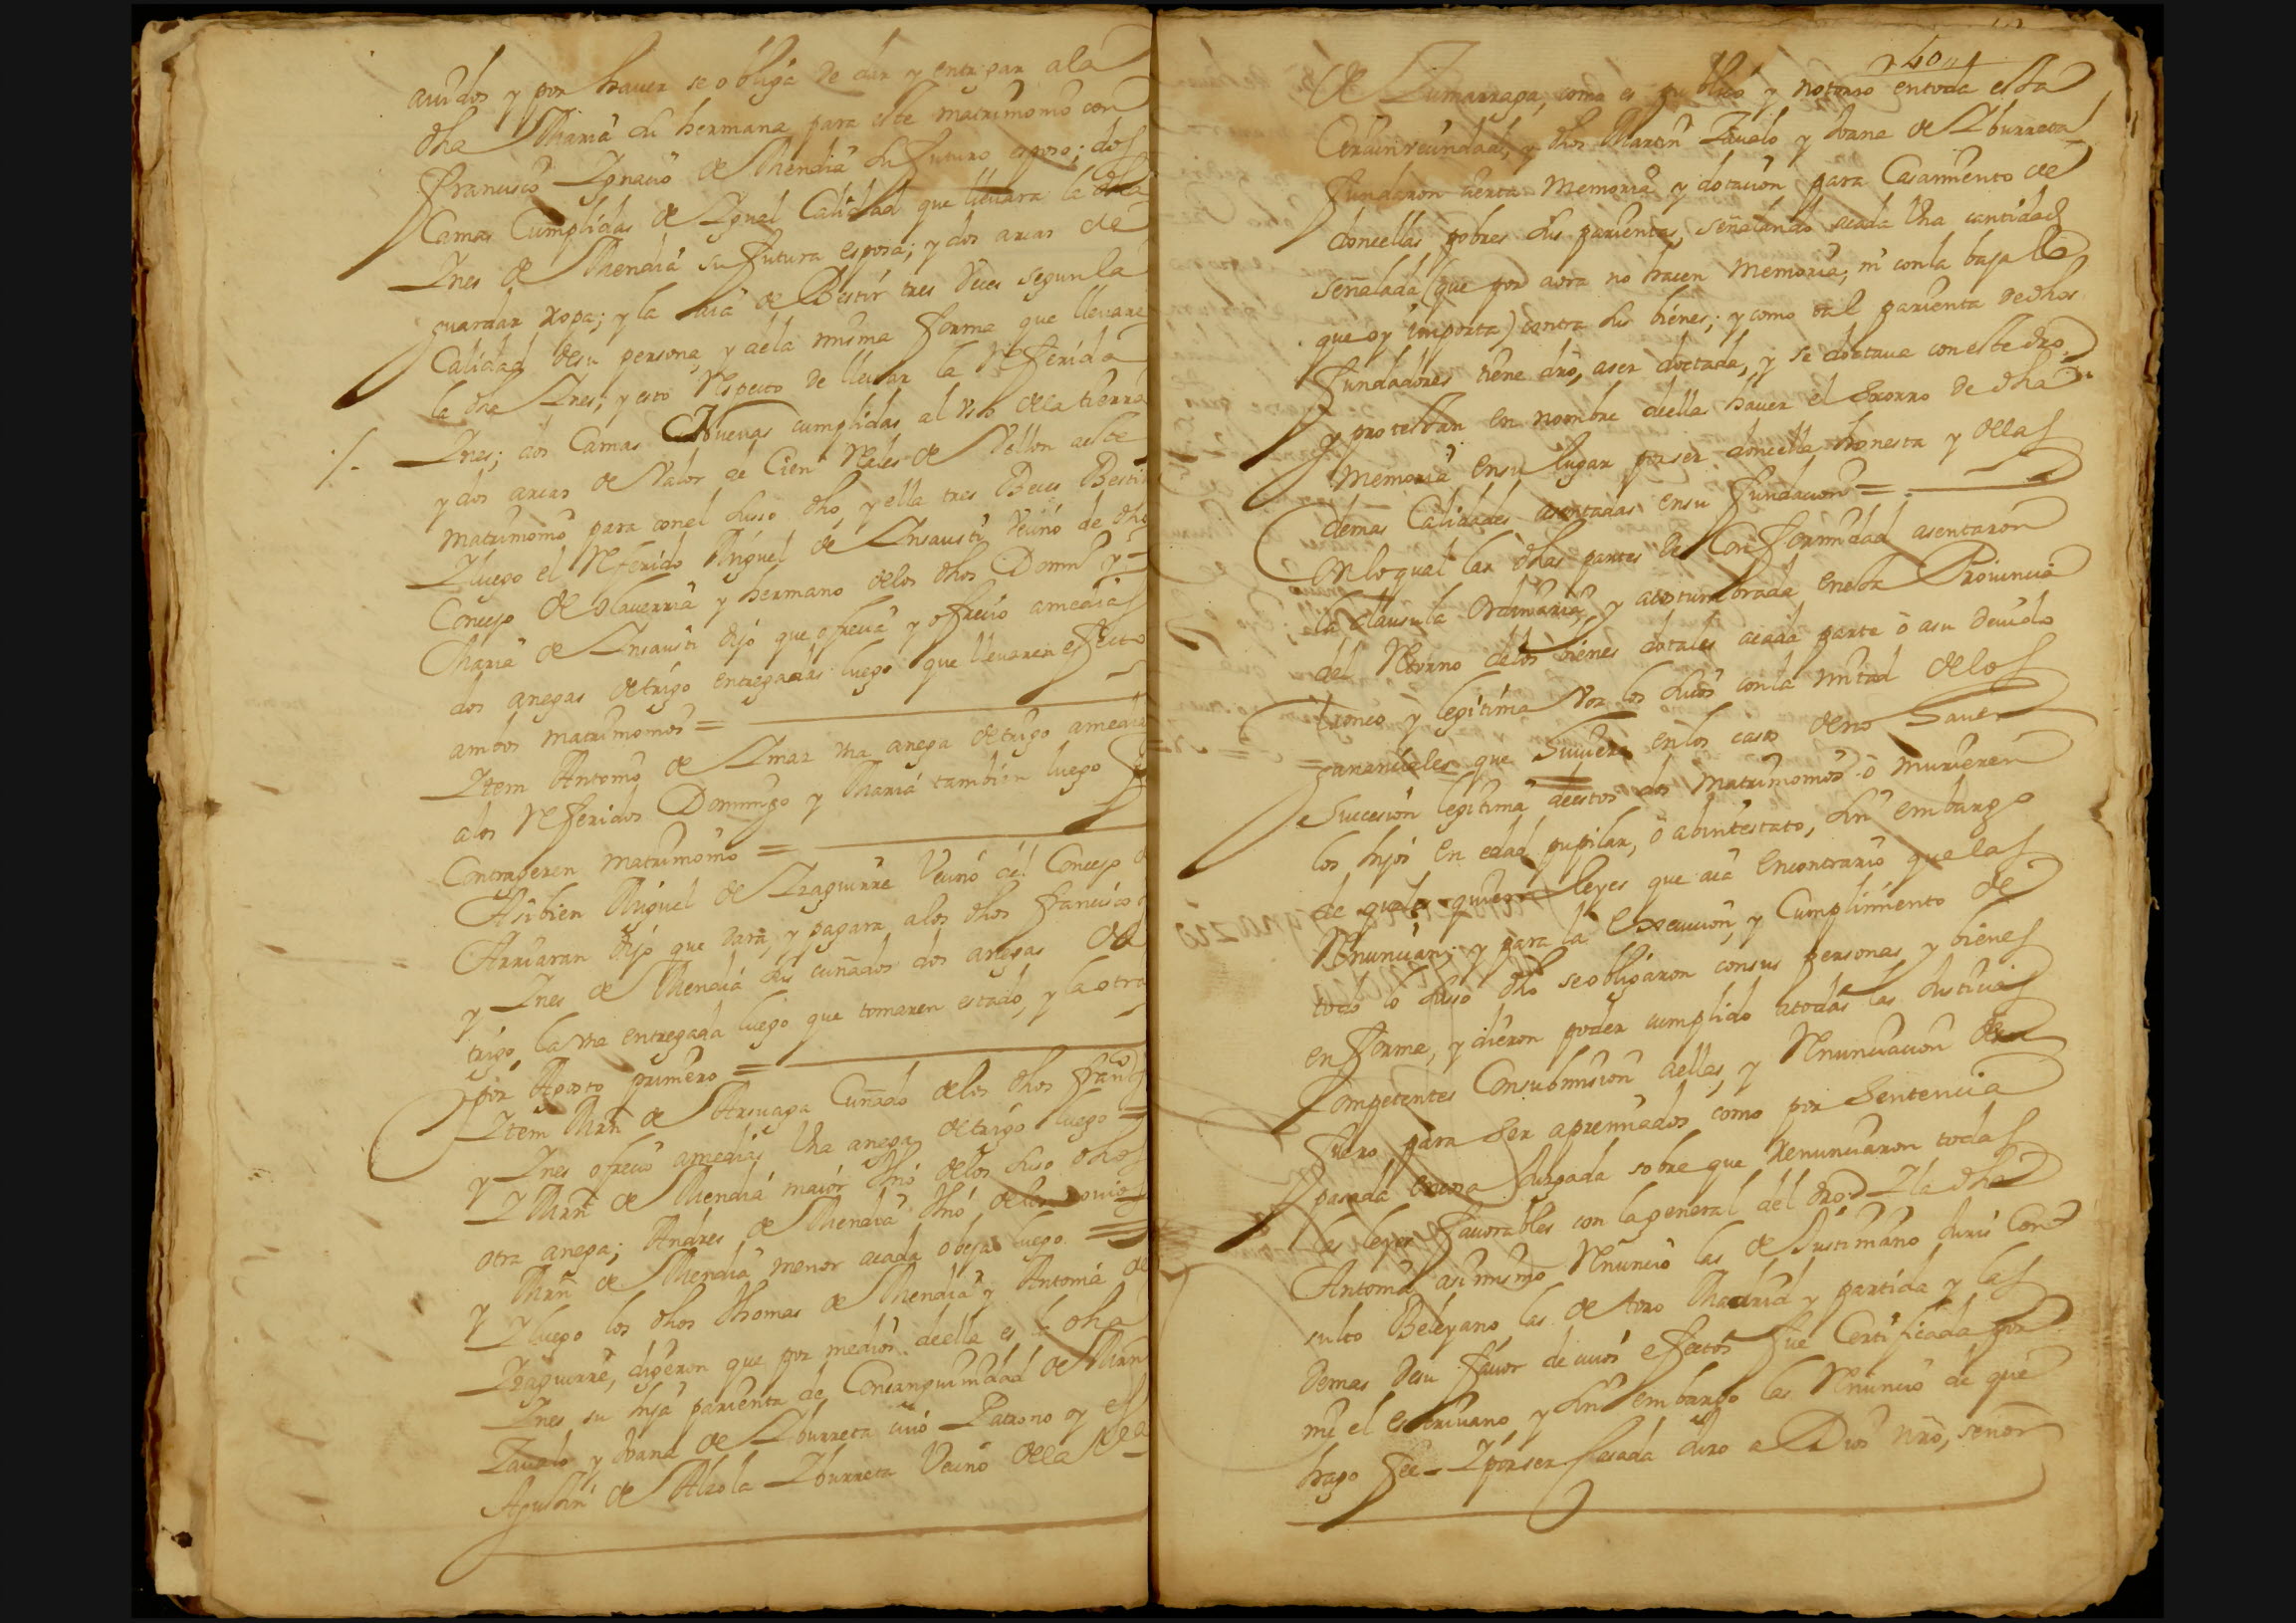 auidos y por hauer se obliga de dar y entregar ala
dha Maria su hermana para este matrimonio con
Francisco Ygnacio de Mendia su futuro esposo; dos
Camas Cumplidas de Ygual Calidad que lleuara la dha
Ynes de Mendia su futura esposa; y dos arcas de
guardar ropa; y la hara de Bestir tres veces segun la
Calidad desu persona, y dela misma forma que lleuare
la dha Ynes; y esto Respecto de lleuar la Referida
Ynes; dos Camas Nueuas cumplidas al vso dela tierra
y dos arcas de Valor de Cien Reales de Vellon aeste
matrimonio para conel suso dho, y ella tres Beces Besti
Yluego el Referido Miguel de Ynsausti Vecino de dho
Concejo de Olauerria y hermano delos dhos Domin y
Maria de Ynsausti dijo que ofrecia y ofrecio amedias
dos anegas de trigo entregadas luego que lleuaren efecto
ambos matrimonios =
Ytem Antonio de Ymaz vna anega de trigo amedia
alos Referidos Domingo y Maria tambien luego
Contrageren matrimonio =
Asibien Miguel de Yzaguirre Vecino del Concejo d
Arriaran dijo que dara, y pagara alos dhos francisco
y Ynes de Mendia sus cuñados dos anegas de
trigo, la vna entregada luego que tomaren estado, y la otra
por Agosto primero =
Ytem Mrn de Arsuaga Cuñado delos dhos franco
y Ynes ofrecio amedias Vna anega de trigo luego =
Y Mrn de Mendia maior thio delos suso dhos
otra anega; Andres de Mendia thio delos nouios
y Mrn de Mendia menor acada obeja luego =
Yluego los dhos Thomas de Mendia y Antonia de
Yzaguirre, digeron que por medios deella es la dha
Ynes su hija parienta de Consanguinidad de Mrn
Zaualo y Juana de Yburreta cuio Patrono oy es
Agustin de Alzola Yburreta Vecino dela Villa
40
de Zumarraga, como es publico y notorio entoda esta
Circunvecindad, y dhos Martin Zaualo y Juana de Yburreta
fundaron cierta Memoria y dotacion para Casamiento de
doncellas pobres sus parientas, señalando acada Vna cantidad
señalada (que por aora no hacen memoria; ni conla baja
que oy importa) contra sus bienes; y como tal parienta dedhos
fundadores tiene dro, aser doctada, y se doctaua coneste dro
y protestan en nombre deella hauer el socorro de dha
Memoria ensu lugar por ser doncella honesta y delas
demas Calidades asentadas ensu fundacion =
Conloqual las dhas partes de Conformidad asentaron
la clausula Ordinaria, y acostumbrada enesta Prouincia
del Retorno delos bienes dotales acada parte o asu deuido
tronco y legitima Por los suios conla mitad delos
gananciales que huuiere enlos casos deno hauer
Succesion legitima deestos dos Matrimonios o murieren
los hijos en edad pupilar, o abintestato, sin embargo
de quales quiera leyes que aia encontrario que las
Renuncian; y para la execucion, y Cumplimiento de
todo lo suso dho se obligaron consus personas y bienes
en forma, y dieron poder cumplido atodas las Justicias
Competentes Consubmision aellas, y Renunciacion de su
fuero para ser apremiados como por Sentencia
pasada encosa Juzgada sobre que renunciaron todas
las leyes fauorables con lageneral del dro. Y la dha
Antonia asimismo Renuncio las de Justiniano Juris Con
sulto Beleyano, las de toro Madrid y partida y las
demas desu fauor de cuios efectos fue Certificada por
mi el escriuano, y sin embargo las Renuncio de que
hago fee = Y por ser casada Juro a Dios nro, señor